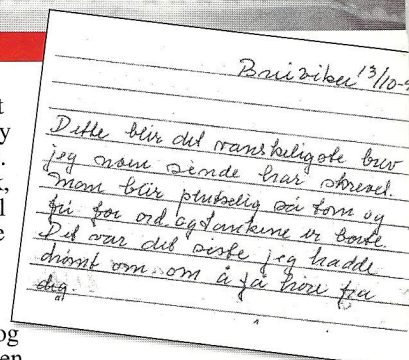 13/10-
Dette blir det vanskeligste brev
jeg noen sende har skrevet.
Man blir plutselig så tom og
fri for ord og tankene er borte.
Det var det siste jeg hadde
drømt om om å få høre fra
dig.
og
en